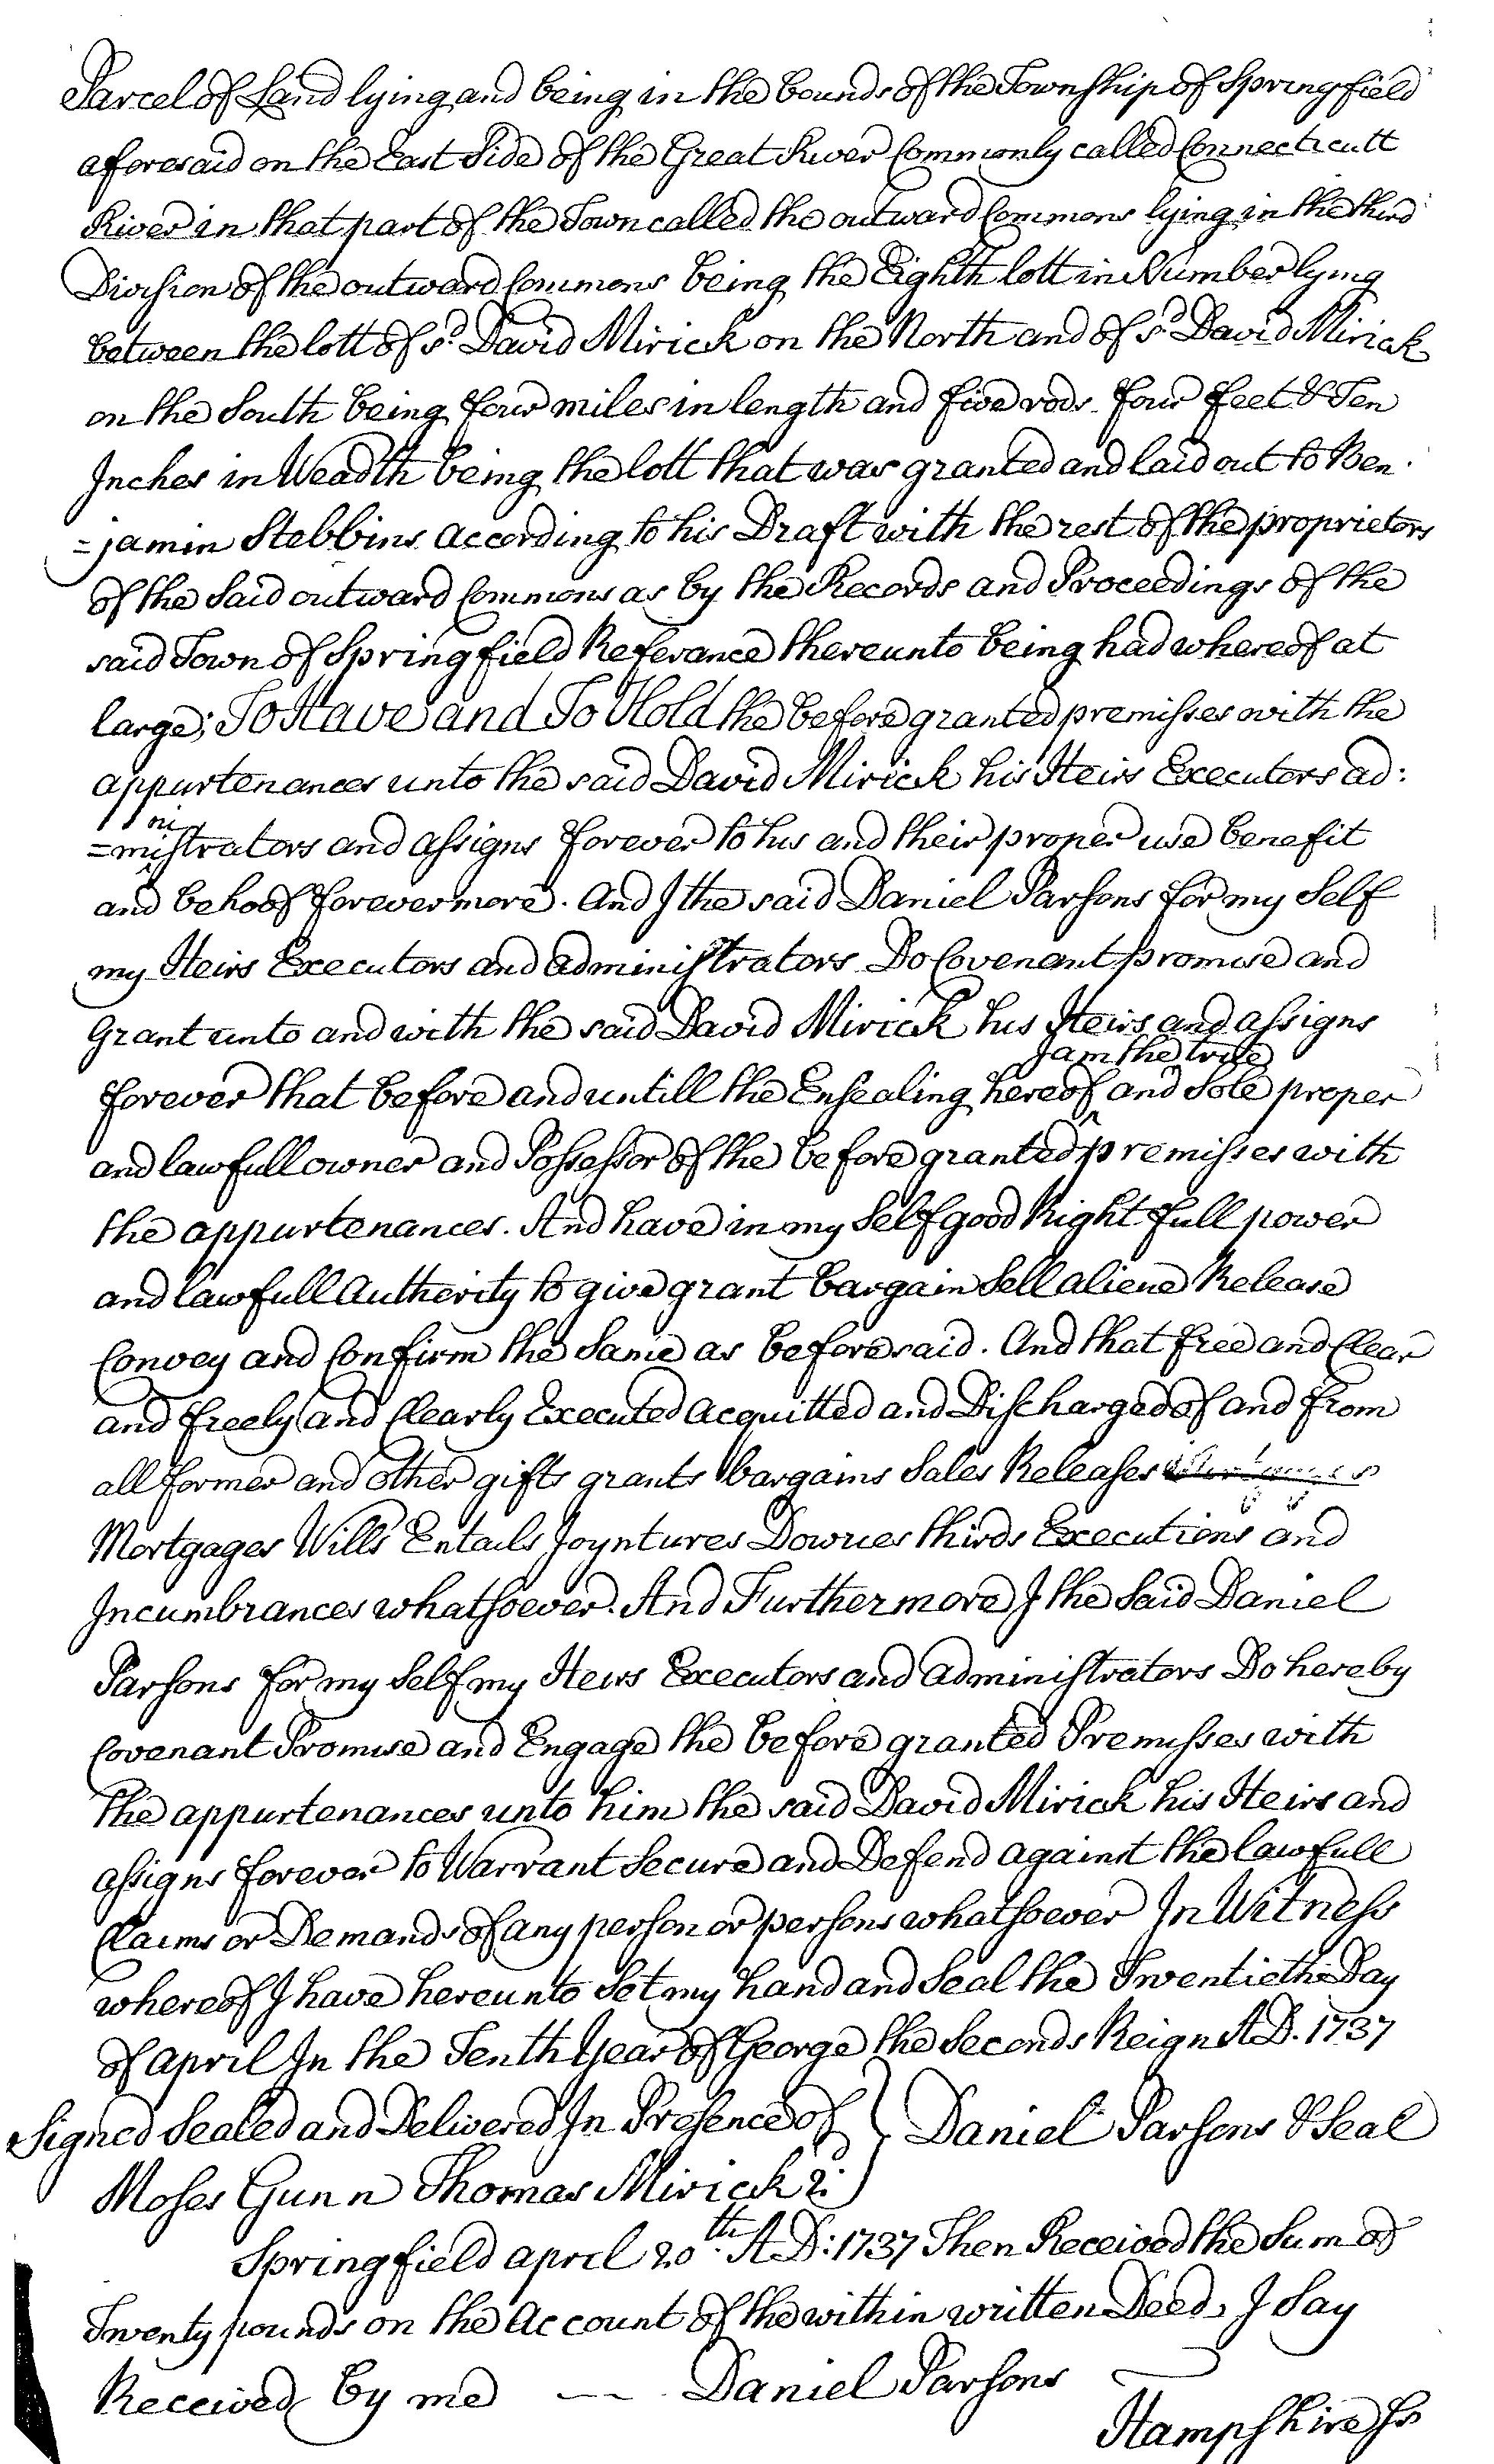 Parcel of Land lying and being in the bounds of the Township of Springfield
aforesaid on the East Side of the Great River Commonly called Connecticutt
River in that part of the Town called the outward Commons lying in the third
Division of the outward Commons being the Eighth lott in Number lying
between the lott of sd. David Mirick on the North and of sd. David Mirick
on the South being four miles in length and five rods four feet & Ten
Inches in Weadth being the lott that was granted and laid out to Ben
=jamin Stebbins according to his Draft with the rest of the proprietors
of the Said outward Commons as by the Records and Proceedings of the
said Town of Springfield Referance thereunto being had whereof at
large; To Have and To Hold the before granted premisses with the
appurtenances unto the said David Mirick his Heirs Executors ad:
=ministrators and assigns forever to his and their proper use benefit
and behoof forevermore. And I the said Daniel Parsons for my Self
my Heirs Executors and administrators Do Covenant promise and
Grant unto and with the said David Mirick his Heirs and assigns
I am the true
forever that before and untill the Ensealing hereof ^ and Sole proper
and lawfull owner and Possessor of the before granted premisses with
the appurtenances. And have in my Self good Right full power
and lawfull Authority to give grant bargain Sell aliene Release
Convey and Confirm the Same as beforesaid. And that free and Clear
and freely and Clearly Executed acquitted and Discharged of and from
all former and other gifts grants bargains Sales Releases
Mortgages Wills Entails Joyntures Dowries thirds Executions and
Incumbrances whatsoever. And Furthermore I the Said Daniel
Parsons for my Self my Heirs Executors and administrators Do hereby
Covenant Promise and Engage the before granted Premisses with
the appurtenances unto him the said David Mirick his Heirs and
assigns forever to Warrant Secure and Defend against the lawfull
Claims or Demands of any person or persons whatsoever In Witness
whereof I have hereunto Set my hand and Seal the Twentieth Day
of april In the Tenth Year of George the Seconds Reign A D. 1737
Signed Sealed and Delivered In Presence of } Daniel Parsons & Seal
Moses Gunn Thomas Mirick 2:
Springfield april 20th. A D: 1737 Then Received the Sum of
Twenty pounds on the Account of the within written Deed, I Say
Received by me —— Daniel Parsons
Hampshire ss